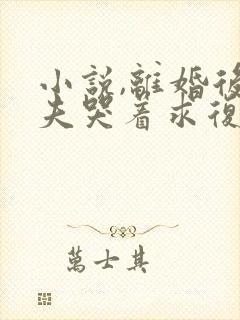 小說,離婚後
夫哭着求復
萬士其